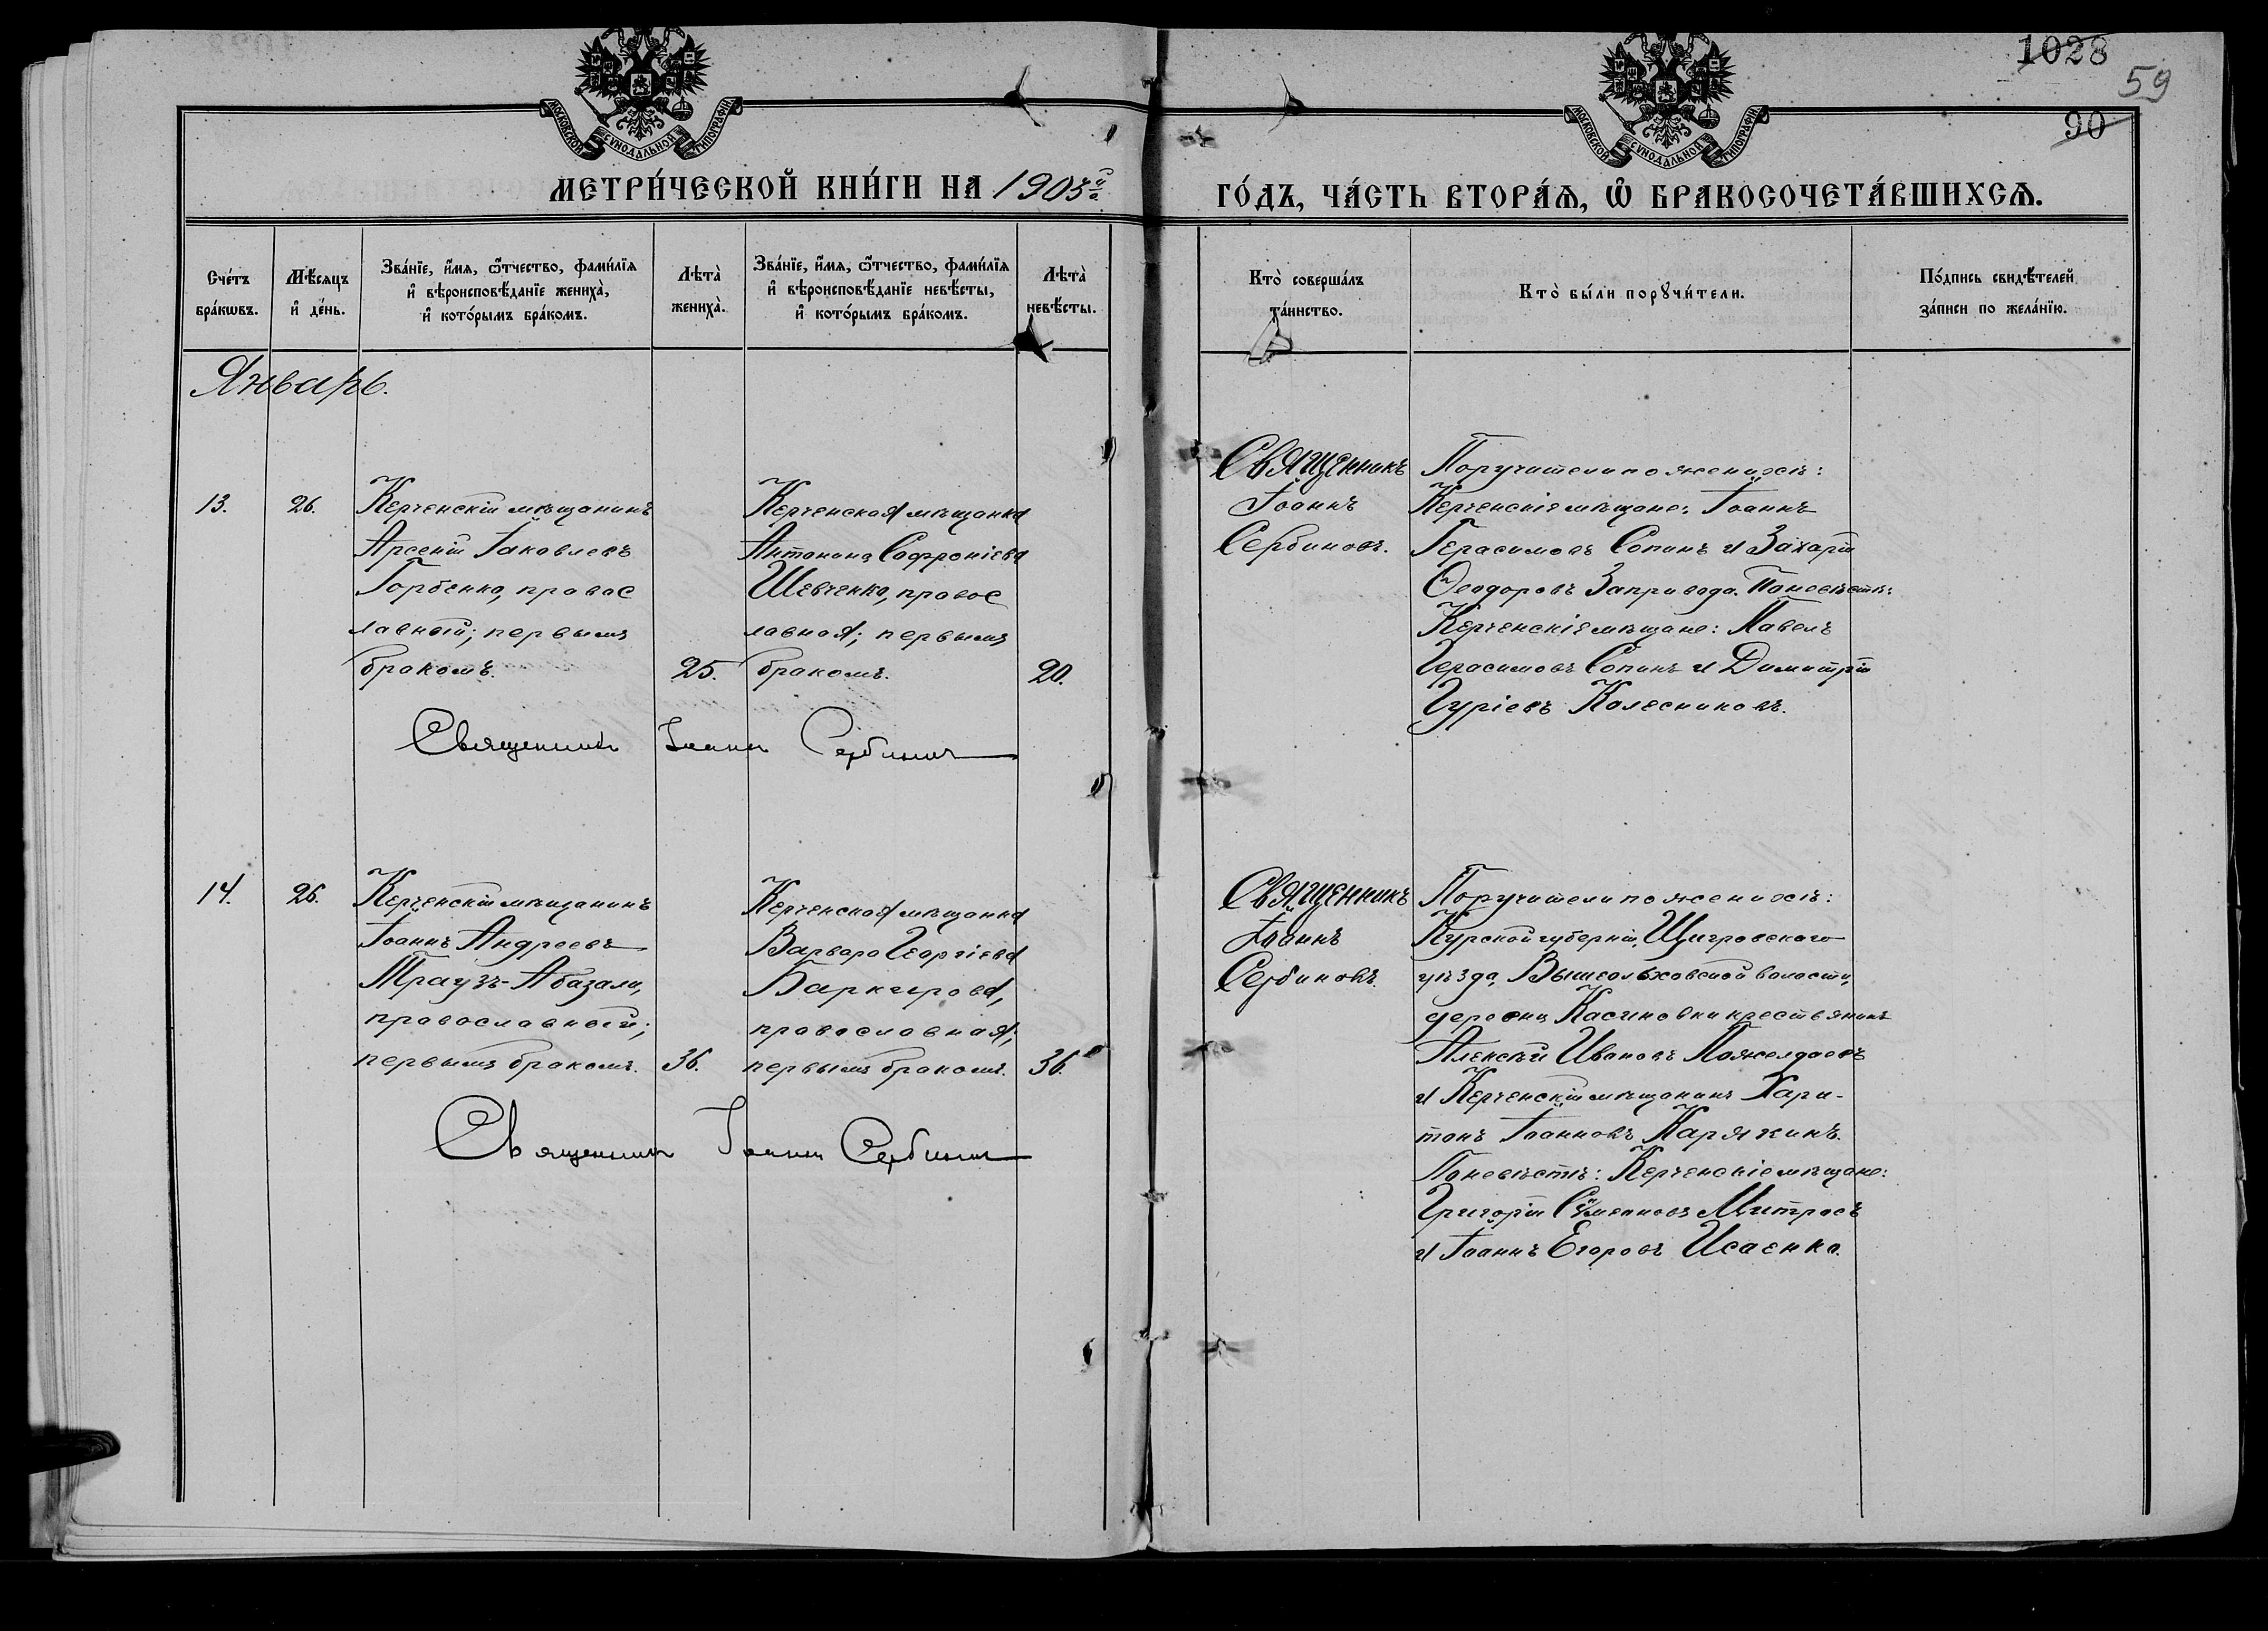 1028
59
90
МОСКОВСКОЙ СѴНОДАЛЬНОЙ ТИПОГРАФІИ
МОСКОВСКОЙ СѴНОДАЛЬНОЙ ТИПОГРАФІИ
МЕТРИ́ЧЕСКОЙ КНИ́ГИ НА 1903й
ГО́ДЪ, ЧА́СТЬ ВТОРА́Ѧ, Ѡ҆ БРАКОСОЧЕТА́ВШИХСѦ.
Сче́тъ бра́кѡвъ.
Мѣ́сяцъ и҆ де́нь.
Зва́нїе, и҆́мя, ѻ҆́тчество, фами́лїя и҆ вѣроисповѣ́данїе жениха̀, и҆ кото́рымъ бра́комъ.
Лѣта̀ жениха̀.
Зва́нїе, и҆́мя, ѻ҆́тчество, фами́лїя и҆ вѣроисповѣ́данїе невѣ́сты, и҆ кото́рымъ бра́комъ.
Лѣта̀ невѣ́сты.
Кто̀ соверша́лъ та́инство.
Кто̀ бы́ли порꙋчи́тели.
По́дпись свидѣ́телей за́писи по жела́нїю.
Январь.
13.
26.
Керченскій мѣщанинъ
Арсеній Іаковлевъ
Горбенко, правос
лавный; первымъ
бракомъ.
25.
Керченская мѣщанка
Антонина Софроніева
Шевченко, правос
лавная; первымъ
бракомъ.
20.
Священникъ
Іоаннъ
Сербиновъ.
Поручители по женихѣ:
Керченскіе мѣщане: Іоаннъ
Герасимовъ Сопинъ и Захарій
Ѳеодоровъ Запривода. По невѣстѣ:
Керченскіе мѣщане: Павелъ
Герасимовъ Сопинъ и Димитрій
Гуріевъ Колесниковъ.
Священникъ Іоаннъ Сербиновъ
14.
26.
Керченскій мѣщанинъ
Іоаннъ Андреевъ
Траузъ-Абазали,
православный;
первымъ бракомъ.
36.
Керченская мѣщанка
Варвара Георгіева
Баркирова,
православная;
первымъ бракомъ.
36.
Священникъ
Іоаннъ
Сербиновъ.
Поручители по женихѣ:
Курской губерніи, Щигровскаго
уѣзда, Вышеольховской волости,
деревни Касиновки крестьянинъ
Алексѣй Ивановъ Пожелдаевъ
и Керченскій мѣщанинъ Хари-
тонъ Іоанновъ Карякинъ.
По невѣстѣ: Керченскіе мѣщане:
Григорій Сѵмеоновъ Митровъ
и Іоаннъ Егоровъ Исаенко.
Священникъ Іоаннъ Сербиновъ